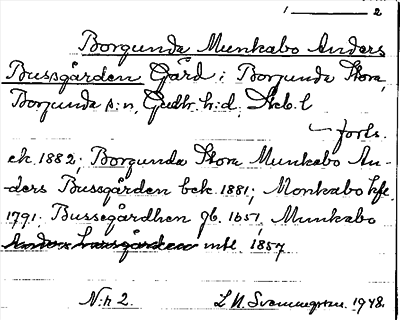 1 — 2
Borgunda Munkabo Anders
Bussgården Gård i Borgunda Stora,
Borgunda s:n, Gudh. h:d, Skb. l
forts.
ek. 1882; Borgunda Stora Munkabo An-
ders Bussgården bek. 1881; Monkabo hfl.
1791. Bussegårdhen gb. 1651, Munkabo
mtl 1857
N:r 2. 1948.